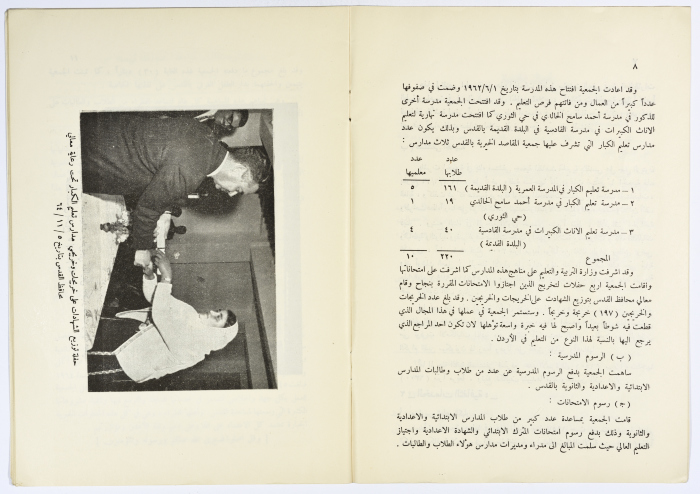 ٨
وقد اعادت الجمعية افتتاح هذه المدرسة بتاريخ ١٩٦٢/٦/١ وضمت في صفوفها
عدداً كبيراً من العمال ومن فاتتهم فرص التعليم . وقد افتتحت الجمعية مدرسة أخرى
للذكور في مدرسة أحمد سامح الخالدي في حي الثوري كما افتتحت مدرسة نهارية لتعليم
الاناث الكبيرات في مدرسة القادسية في البلدة القديمة بالقدس وبذلك يكون عدد
مدارس تعليم الكبار التي تشرف عليها جمعية المقاصد الخيرية بالقدس ثلاث مدارس :
عدد طلابها عدد معلميها
١ ــ مدرسة تعليم الكبار في المدرسة العمرية ( البلدة القديمة ) ١٦١ ٥
٢ ــ مدرسة تعليم الكبار في مدرسة أحمد سامح الخالدي ١٩ ١
( حي الثوري )
٣ ــ مدرسة تعليم الاناث الكبيرات في مدرسة القادسية ٤٠ ٤
( البلدة القديمة )
المجموع ٢٢٠ ١٠
وقد اشرفت وزارة التربية والتعليم على مناهج هذه المدارس كما اشرفت على امتحاناتها
وأقامت الجمعية اربع حفلات لتخريج الذين اجتازوا الامتحانات المقررة بنجاح وقام
معالي محافظ القدس بتوزيع الشهادات على الخريجات والخريجين . وقد بلغ عدد الخريجات
والخريجين ( ١٩٧ ) خريجة وخريجاً . وستستمر الجمعية في عملها في هذا المجال الذي
قطعت فيه شوطاً بعيداً وأصبح لها فيه خبرة واسعة تؤهلها لان تكون احد المراجع الذي
يرجع اليها بالنسبة لهذا النوع من التعليم في الأردن .
( ب ) الرسوم المدرسية :
ساهمت الجمعية بدفع الرسوم المدرسية عن عدد من طلاب وطالبات المدارس
الابتدائية والاعدادية والثانوية بالقدس .
( ج ) رسوم الامتحانات :
قامت الجمعية بمساعدة عدد كبير من طلاب المدارس الابتدائية والاعدادية
والثانوية وذلك بدفع رسوم امتحانات المترك الابتدائي والشهادة الاعدادية واجتياز
التعليم العالي حيث سلمت المبالغ الى مدراء ومديرات مدارس هؤلاء الطلاب والطالبات .
حفلة توزيع الشهادات على خريجات وخريجي مدارس تعليم الكبار تحت رعاية معالي
محافظ القدس بتاريخ ٥ / ١١ / ٦٤